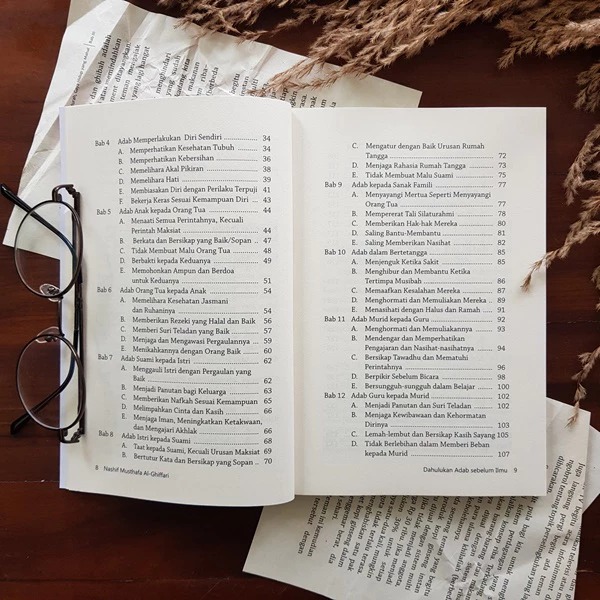 Bab 4 Adab Memperlakukan Diri Sendiri .................. 34
A. Memperhatikan Kesehatan Tubuh ............ 34
B. Memperhatikan Kebersihan ..................... 36
C. Memelihara Akal Pikiran ......................... 38
D. Memelihara Hati .................................... 39
E. Membiasakan Diri dengan Perilaku Terpuji 41
F. Bekerja Keras Sesuai Kemampuan Diri .... 43
Bab 5 Adab Anak kepada Orang Tua ..................... 44
A. Menaati Semua Perintahnya, Kecuali
Perintah Maksiat .................................... 44
B. Berkata dan Bersikap yang Baik/Sopan .... 47
C. Tidak Membuat Malu Orang Tua ............. 48
D. Berbakti kepada Keduanya ..................... 49
E. Memohonkan Ampun dan Berdoa
untuk Keduanya .................................... 51
Bab 6 Adab Orang Tua kepada Anak ..................... 54
A. Memelihara Kesehatan Jasmani
dan Ruhaninya ...................................... 54
B. Memberikan Rezeki yang Halal dan Baik 56
C. Memberi Suri Teladan yang Baik ............. 57
D. Menjaga dan Mengawasi Pergaulannya .... 59
E. Menikahkannya dengan Orang Baik ........ 60
Bab 7 Adab Suami kepada Istri ........................... 62
A. Menggauli Istri dengan Pergaulan yang
Baik ..................................................... 62
B. Menjadi Panutan bagi Keluarga .............. 63
C. Memberikan Nafkah Sesuai Kemampuan 65
D. Melimpahkan Cinta dan Kasih ................ 66
E. Menjaga Iman, Meningkatkan Ketakwaan,
dan Mengajari Akhlak ............................ 66
Bab 8 Adab Istri kepada Suami ........................... 68
A. Taat kepada Suami, Kecuali Urusan Maksiat 69
B. Bertutur Kata dan Bersikap yang Sopan .. 70
8 Nashif Musthafa Al-Ghiffari
C. Mengatur dengan Baik Urusan Rumah
Tangga ................................................. 72
D. Menjaga Rahasia Rumah Tangga ............ 73
E. Tidak Membuat Malu Suami .................. 75
Bab 9 Adab kepada Sanak Famili ........................ 77
A. Menyayangi Mertua Seperti Menyayangi
Orang Tua ............................................ 77
B. Mempererat Tali Silaturahmi ................. 78
C. Memberikan Hak-hak Mereka ................ 80
D. Saling Bantu-Membantu ........................ 81
E. Saling Memberikan Nasihat ................... 82
Bab 10 Adab dalam Bertetangga ........................... 85
A. Menjenguk Ketika Sakit ......................... 85
B. Menghibur dan Membantu Ketika
Tertimpa Musibah ................................. 86
C. Memaafkan Kesalahan Mereka .............. 87
D. Menghormati dan Memuliakan Mereka . 89
E. Menasihati dengan Halus dan Ramah .... 91
Bab 11 Adab Murid kepada Guru ......................... 92
A. Menghormati dan Memuliakannya ......... 93
B. Mendengar dan Memperhatikan
Pengajaran dan Nasihat-nasihatnya ........ 94
C. Bersikap Tawadhu dan Mematuhi
Perintahnya .......................................... 96
D. Berpikir Sebelum Bicara ........................ 98
E. Bersungguh-sungguh dalam Belajar ....... 100
Bab 12 Adab Guru kepada Murid ......................... 102
A. Menjadi Panutan dan Suri Teladan ......... 102
B. Menjaga Kewibawaan dan Kehormatan
Dirinya ................................................. 103
C. Lemah-lembut dan Bersikap Kasih Sayang 105
D. Tidak Berlebihan dalam Memberi Beban
kepada Murid ....................................... 107
Dahulukan Adab sebelum Ilmu 9